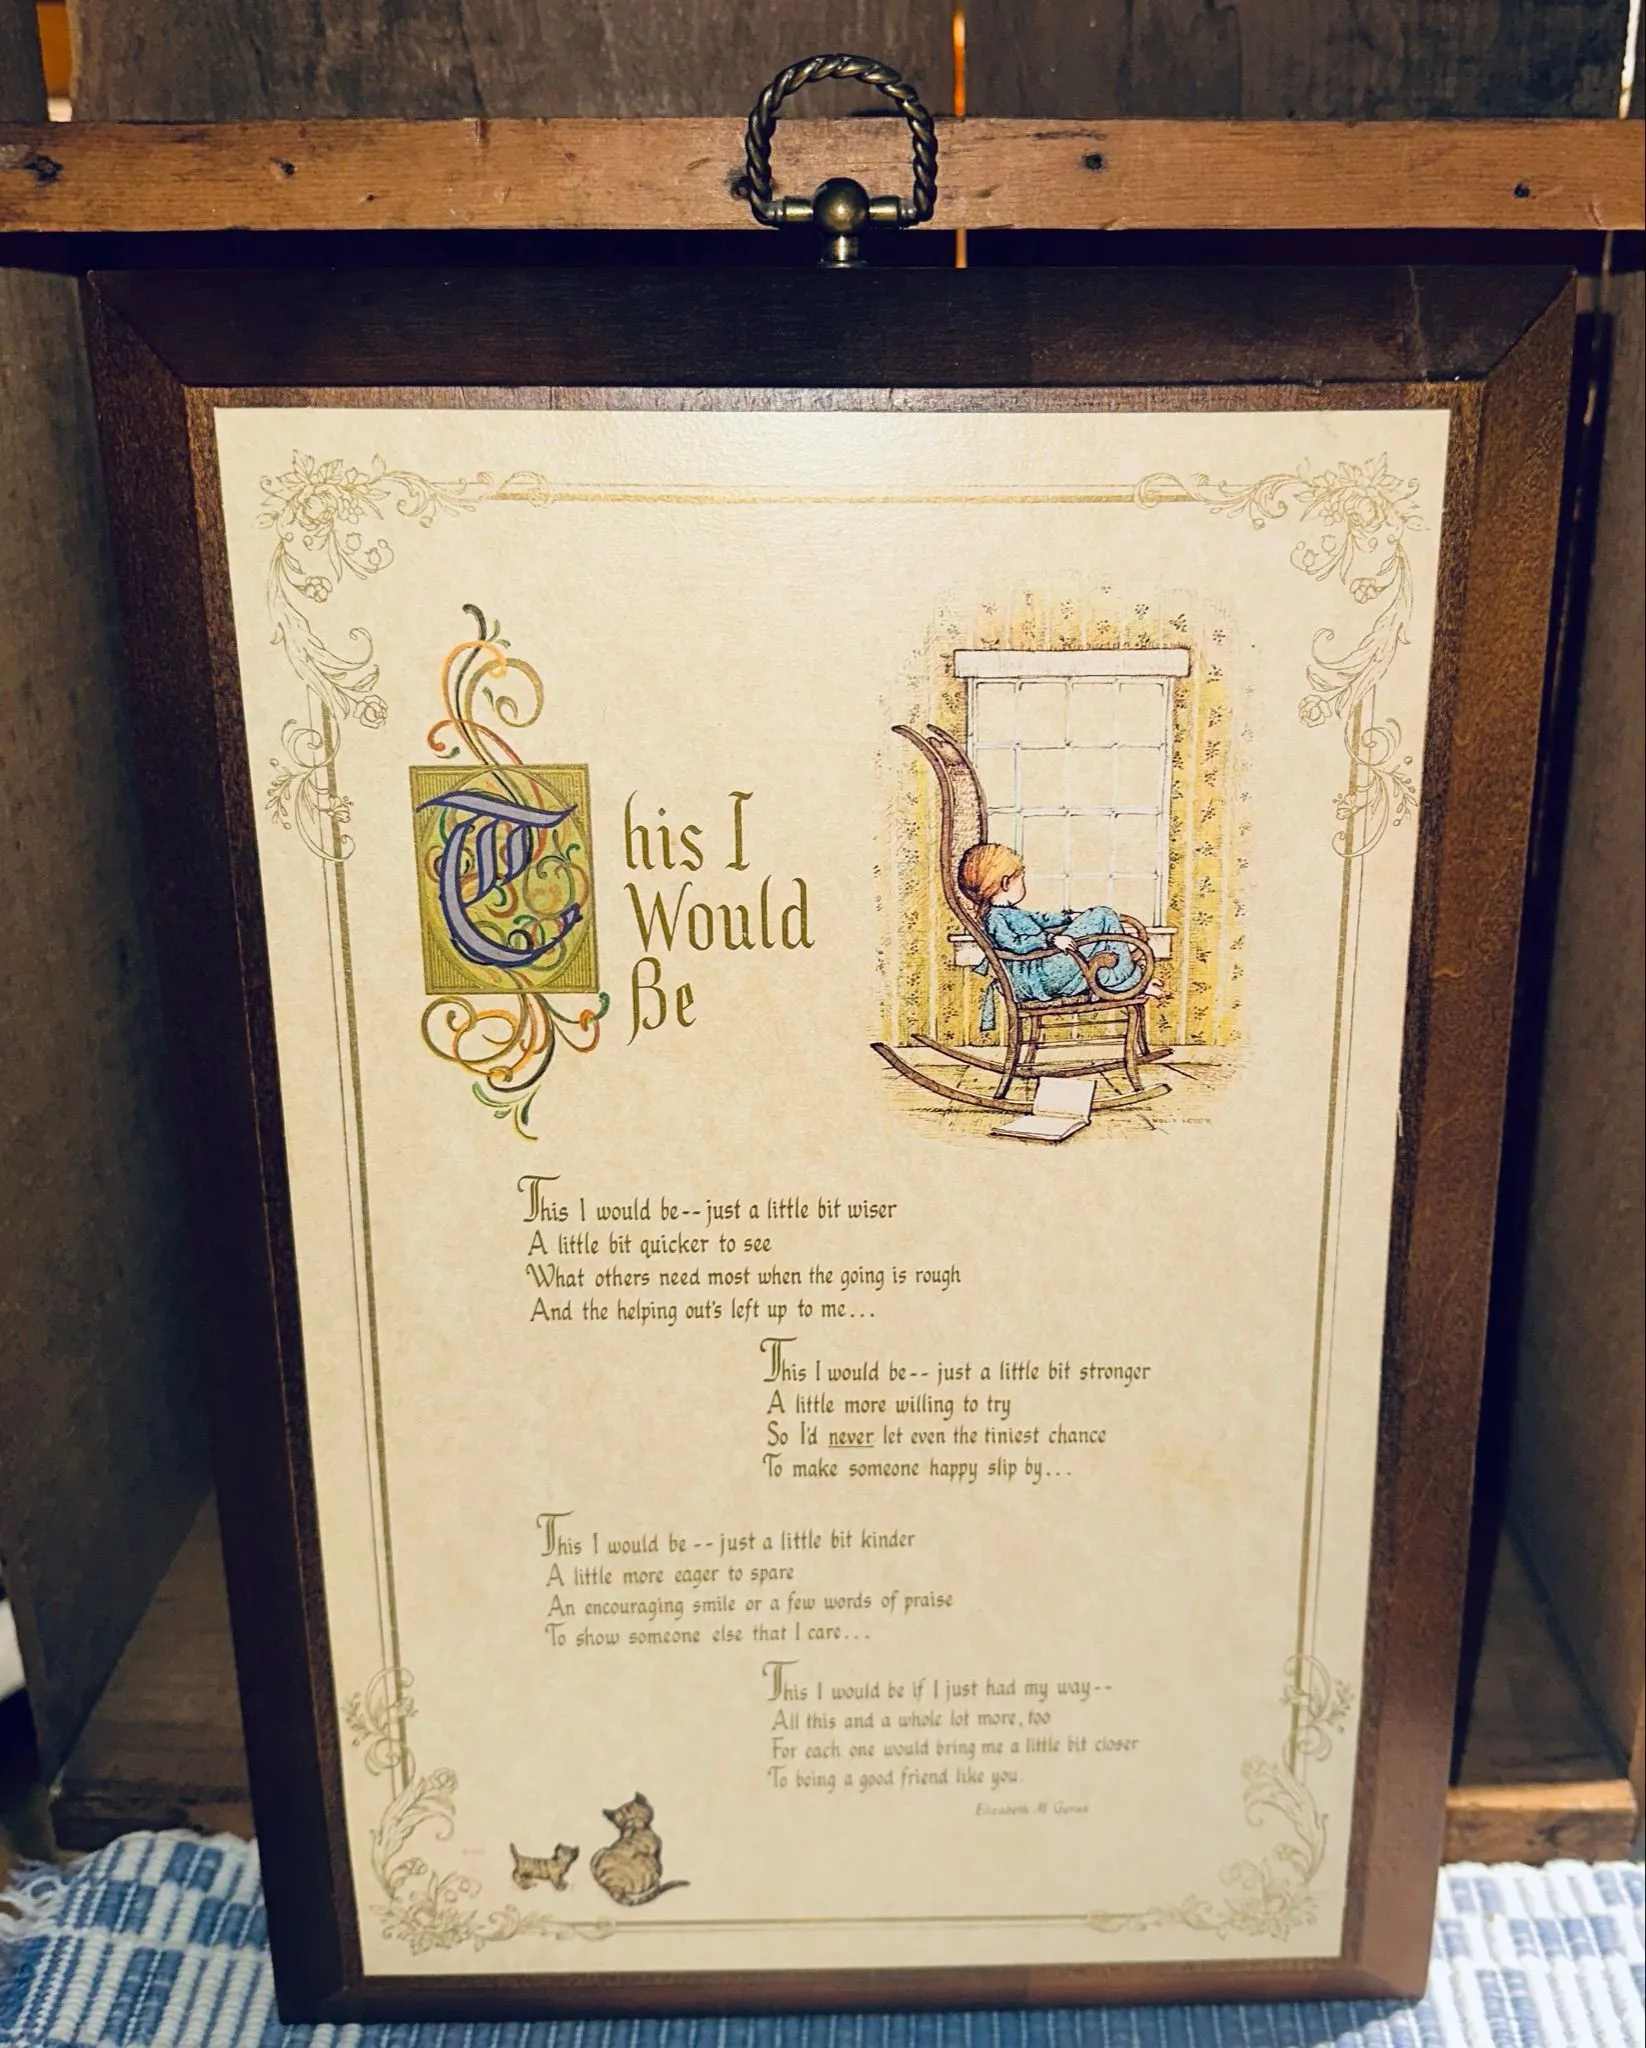 This I
Would
Be
HOLLY HOBBIE
This I would be--just a little bit wiser
A little bit quicker to see
What others need most when the going is rough
And the helping out's left up to me...
This I would be-- just a little bit stronger
A little more willing to try
So I'd never let even the tiniest chance
To make someone happy slip by...
This I would be--just a little bit kinder
A little more eager to spare
An encouraging smile or a few words of praise
To show someone else that I care...
This I would be if I just had my way--
All this and a whole lot more, too
For each one would bring me a little bit closer
To being a good friend like you.
Elizabeth M